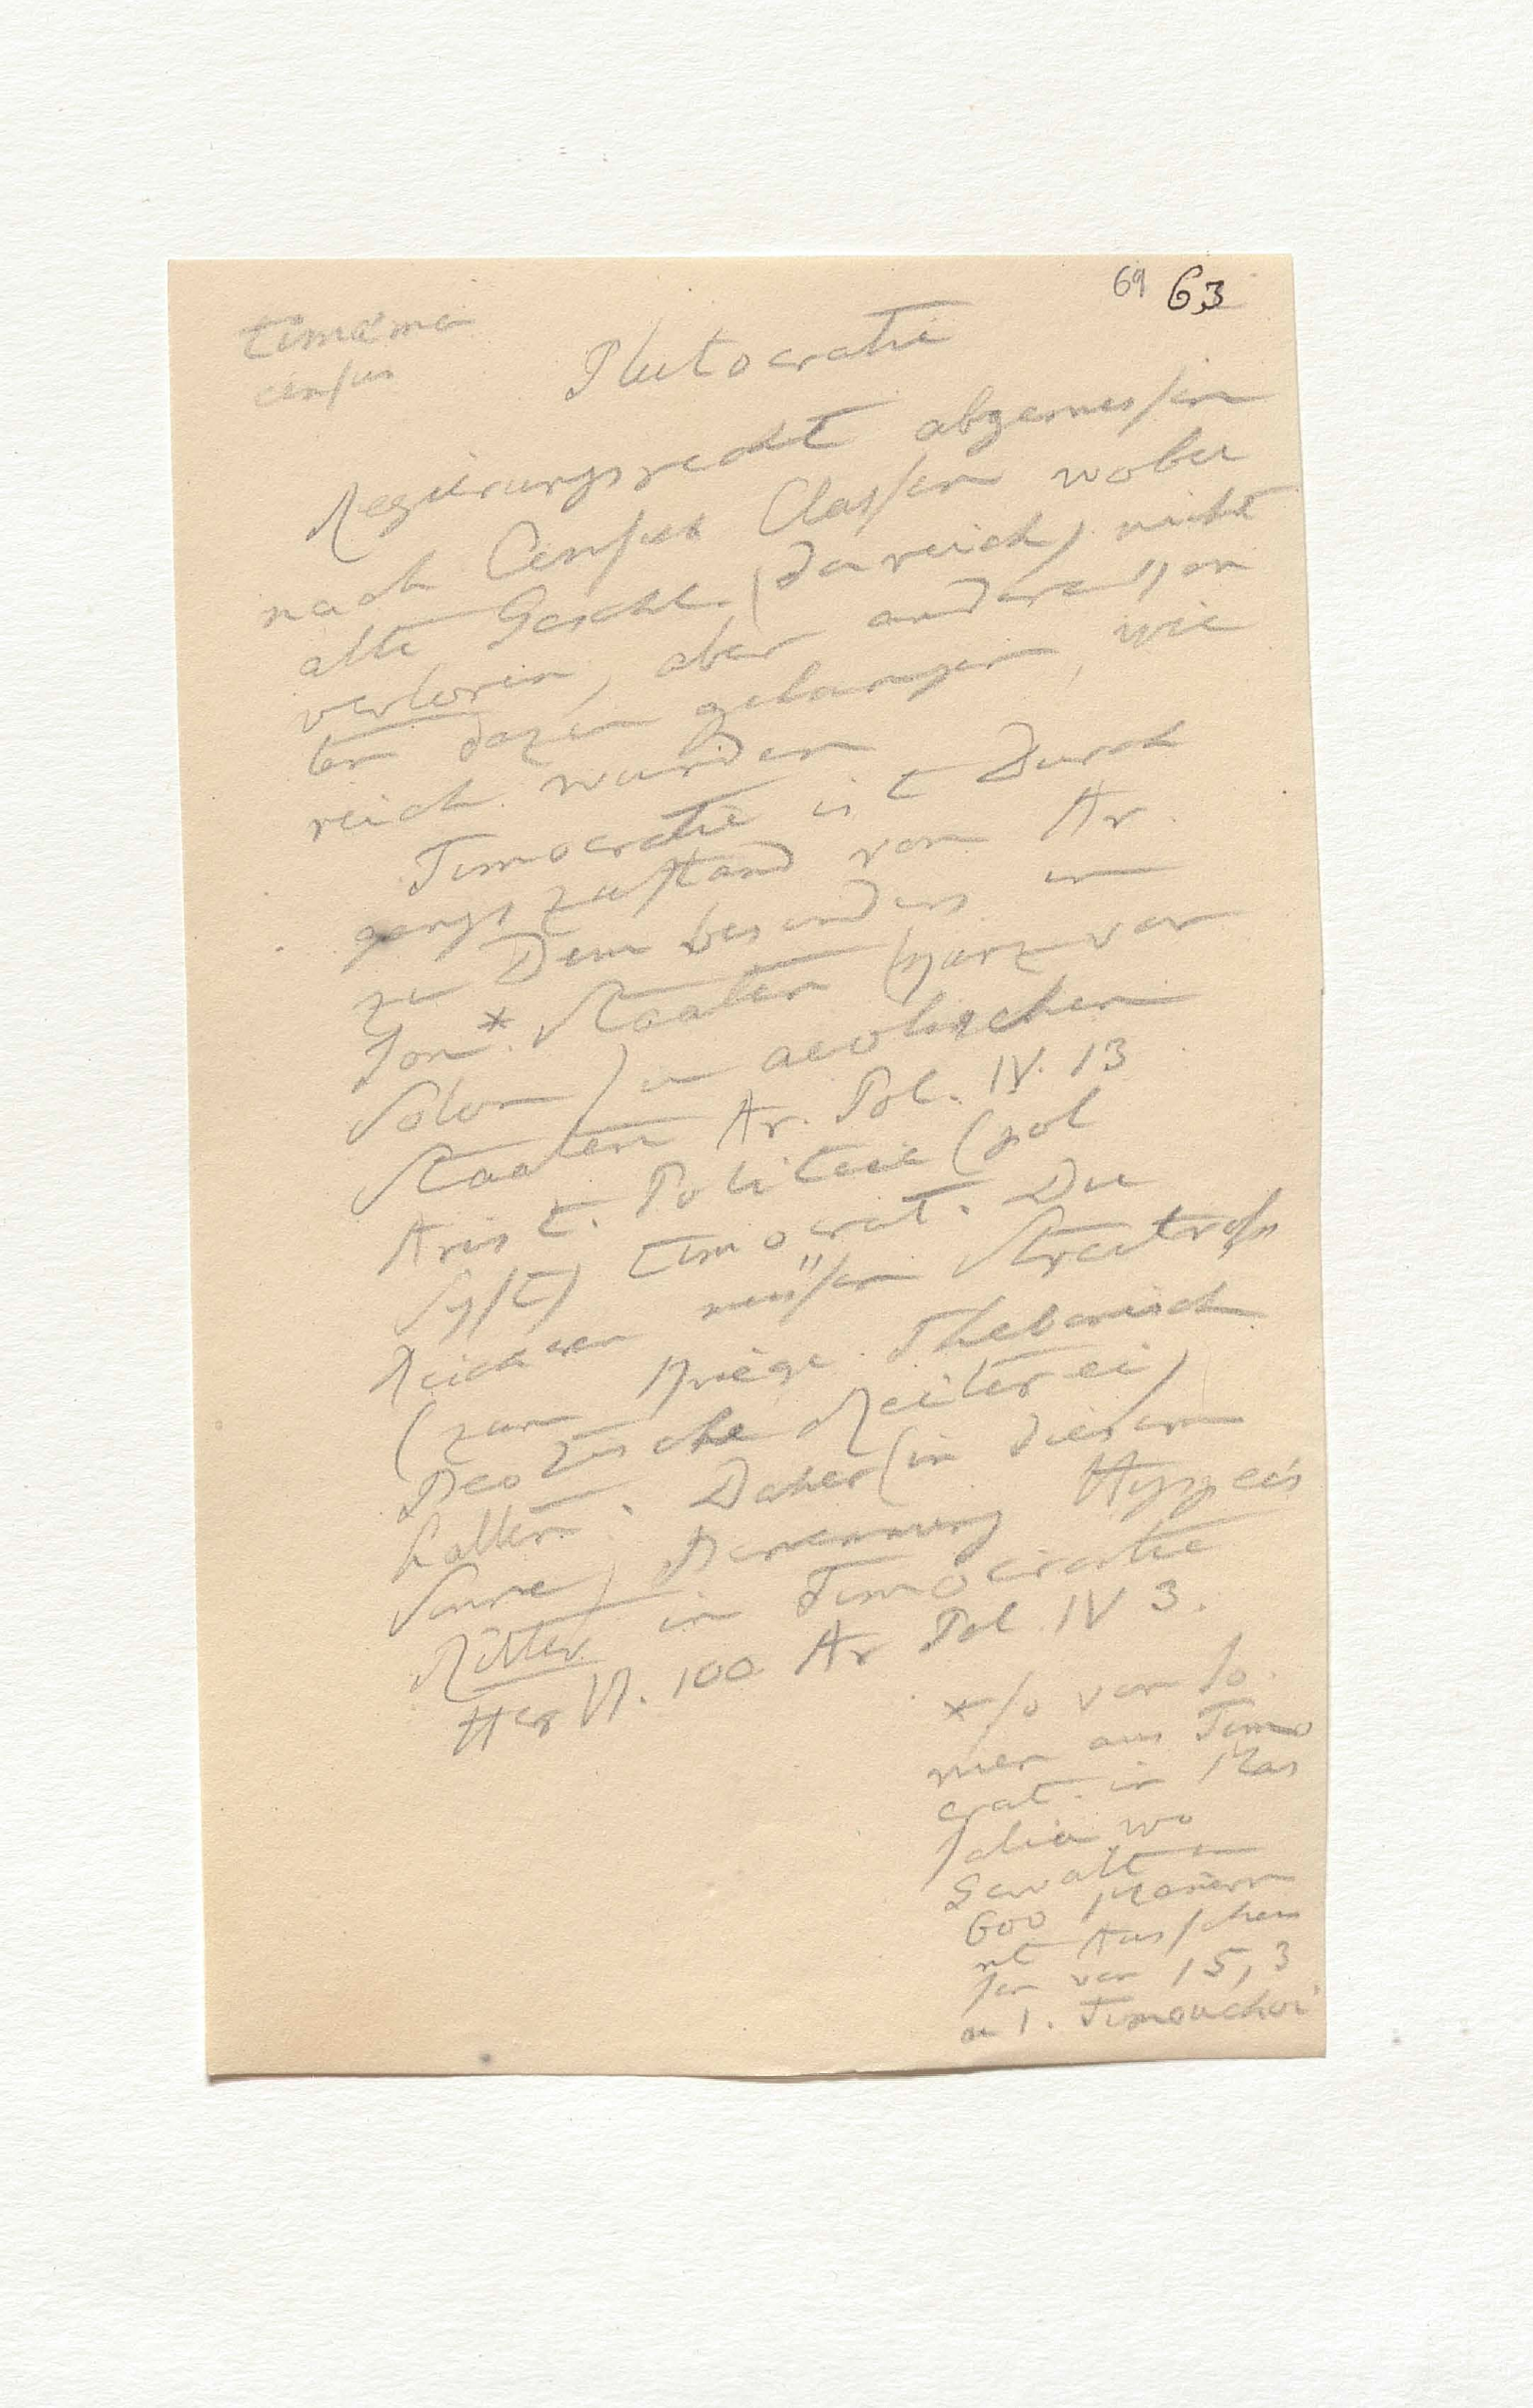 69 63
timäma
census
Plutocratie
Regierungsrecht abgemessen
nach Census Classen wobei
alte Geschl. (da reich) nicht
verloren, aber andere
dazu gelangen, wie
reich wurden
Timocratie ist Durch
gangszustand von Ar.
zu Dem besonders in
Ion.* Staaten (ganz vor
Solon) in aeolischen
Staaten Ar. Pol. IV. 13
Arist. Politeie (sol
Syst) timocrat. Die
Reichen müssen Streitross
(zum Kriege. Thebanisch
Beotische Reiterei)
halten. Daher (in diesem
Sinne) Benennung Hyppeis
Ritter in Timocratie
Her VI. 100 Ar Pol IV 3.
* so von Io
nien aus Timo
crat. in Mas
salia wo
Gewalt in
600 Männern
mit Ausschus
sen von 15, 3
u 1. Timouchoi